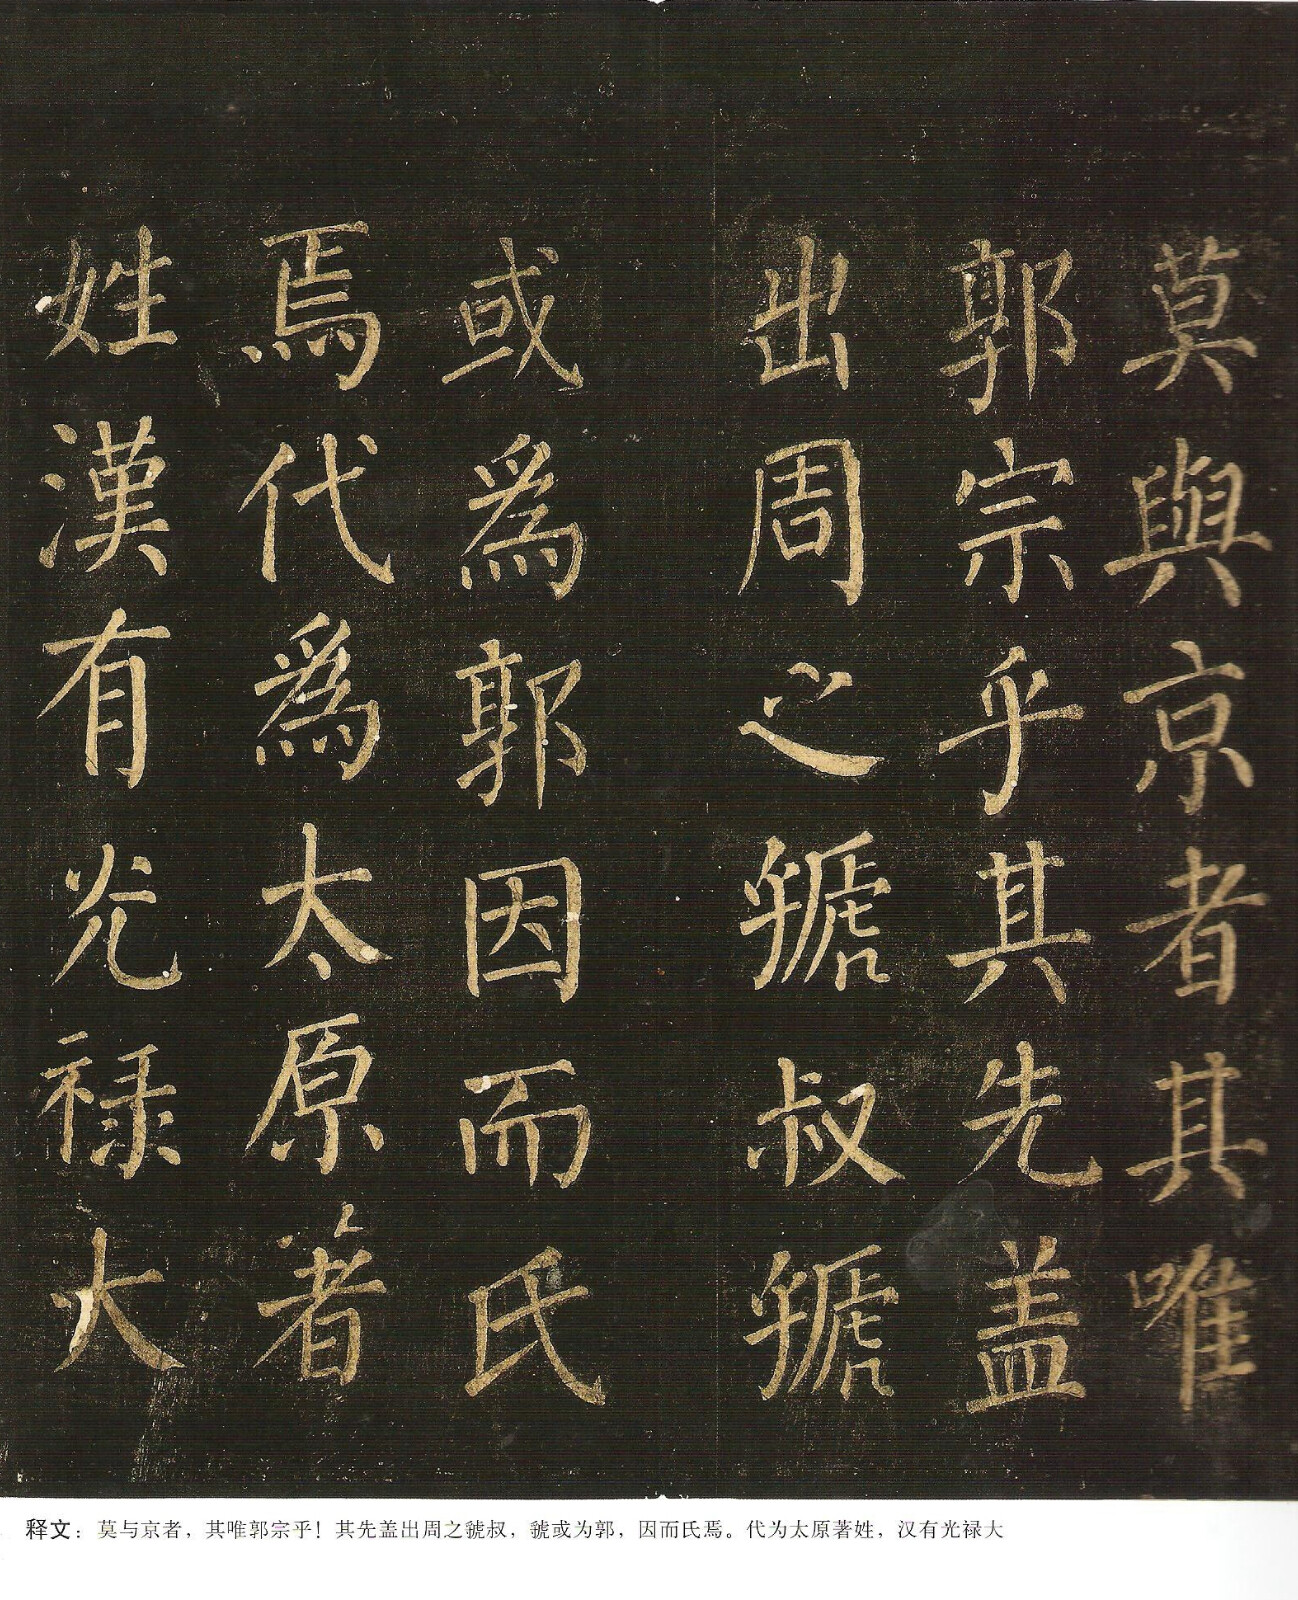 莫與京者其唯
郭宗乎其先盖
出周之虢叔虢
或為郭因而氏
焉代為太原著
姓漢有光禄大
释文：莫与京者，其唯郭宗乎！其先盖出周之虢叔，虢或为郭，因而氏焉。代为太原著姓，汉有光禄大